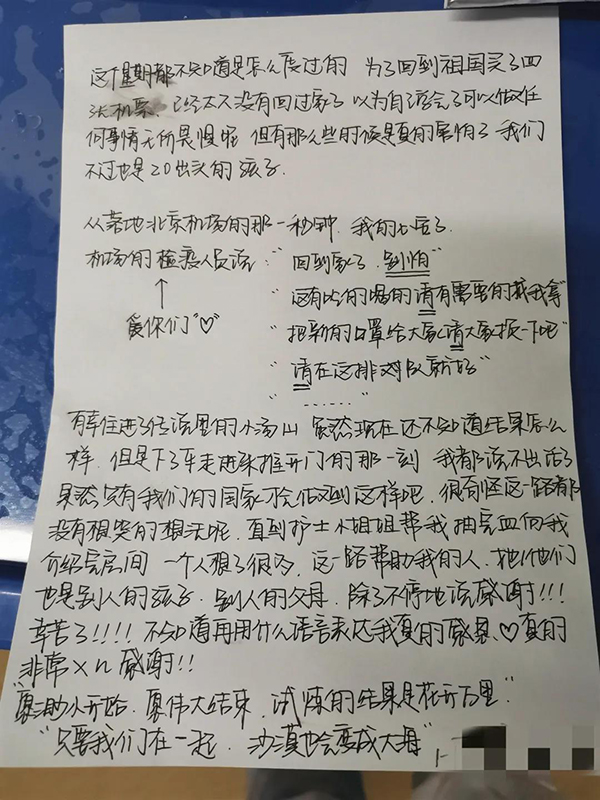 这个星期都不知道是怎么度过的 为了回到祖国买了四
张机票. 已经太久没有回过家了 以为自己学会了可以做任
何事情无所畏惧呢 但有那么些时候是真的害怕了 我们
不过也是20出头的孩子.
从落地北京机场的那一秒钟. 我的心落了
机场的检疫人员说: "回到家了. 别怕"
"还有吃的喝的请有需要的找我拿"
爱你们"♡"
"把新的口罩给大家请大家换一下吧"
"请在这排对队就好"
"......"
有幸住进了传说里的小汤山 虽然现在还不知道结果怎么
样. 但是下了车走进来推开门的那一刻 我都说不出话了
果然只有我们的国家才会做到这样吧. 很奇怪这一路都
没有想哭的想法呢. 直到护士小姐姐帮我抽完血向我
介绍完房间 一个人想了很多. 这一路帮助我的人. 她/他们
也是别人的孩子. 别人的父母. 除了不停地说感谢!!!
辛苦了!!!! 不知道再用什么语言表达我真的感恩.♡真的
非常×n感谢!!
"渺小开始. 伟大结束. 试炼的结果是花开万里"
"只要我们在一起. 沙漠也会变成大海"